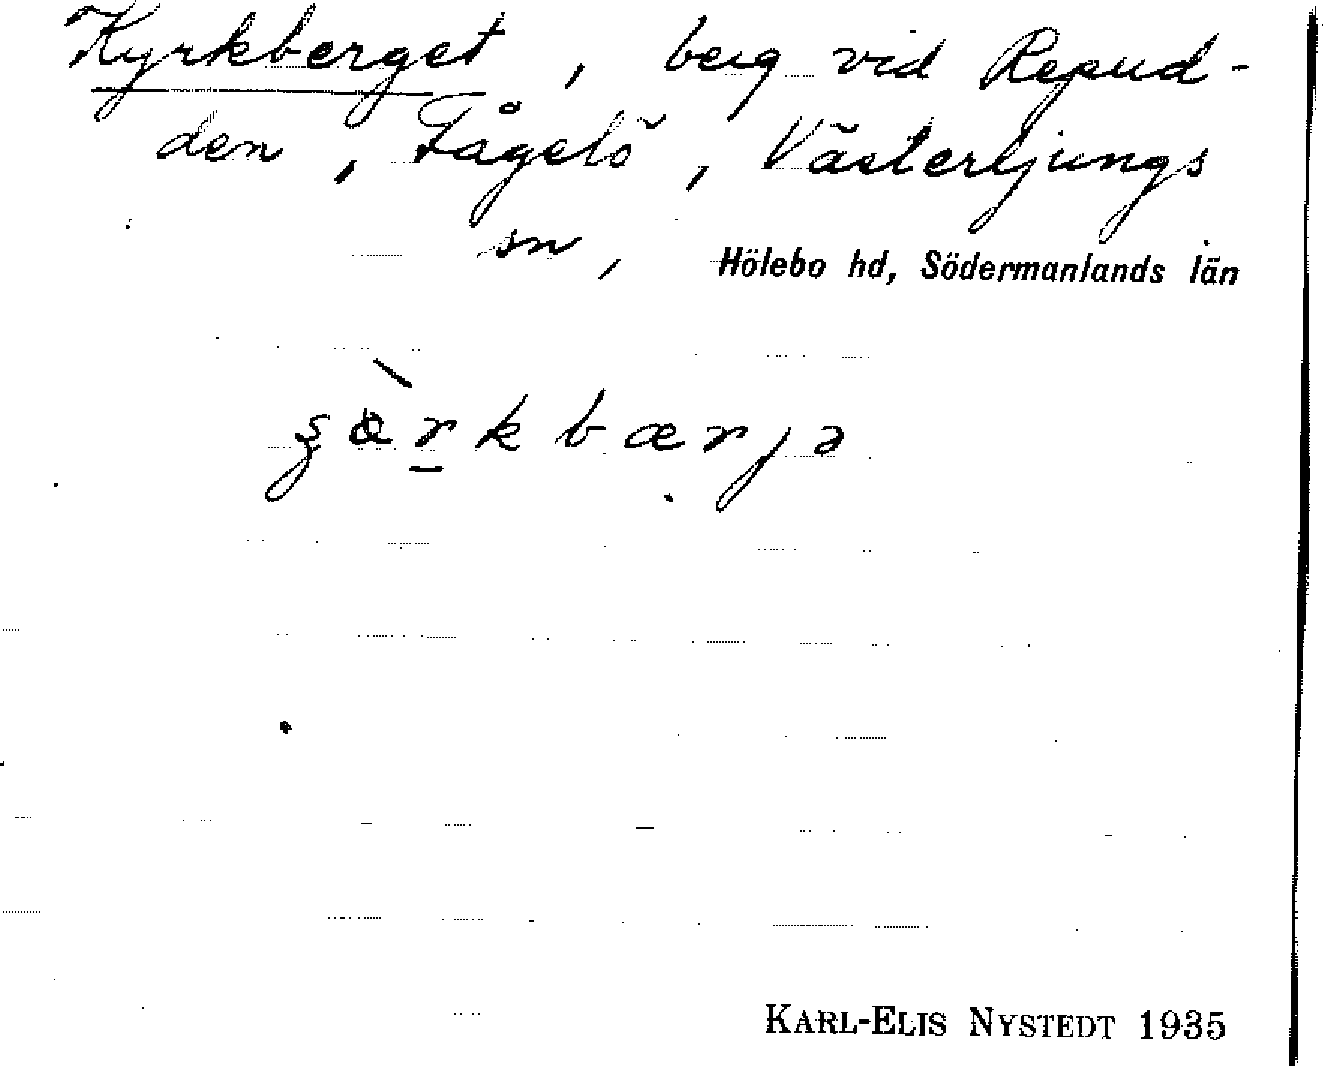 Kyrkberget, berg vid Repud-
den, Fågelö, Västerljungs
sn, Hölebo hd, Södermanlands län
KARL-ELIS NYSTEDT 1935